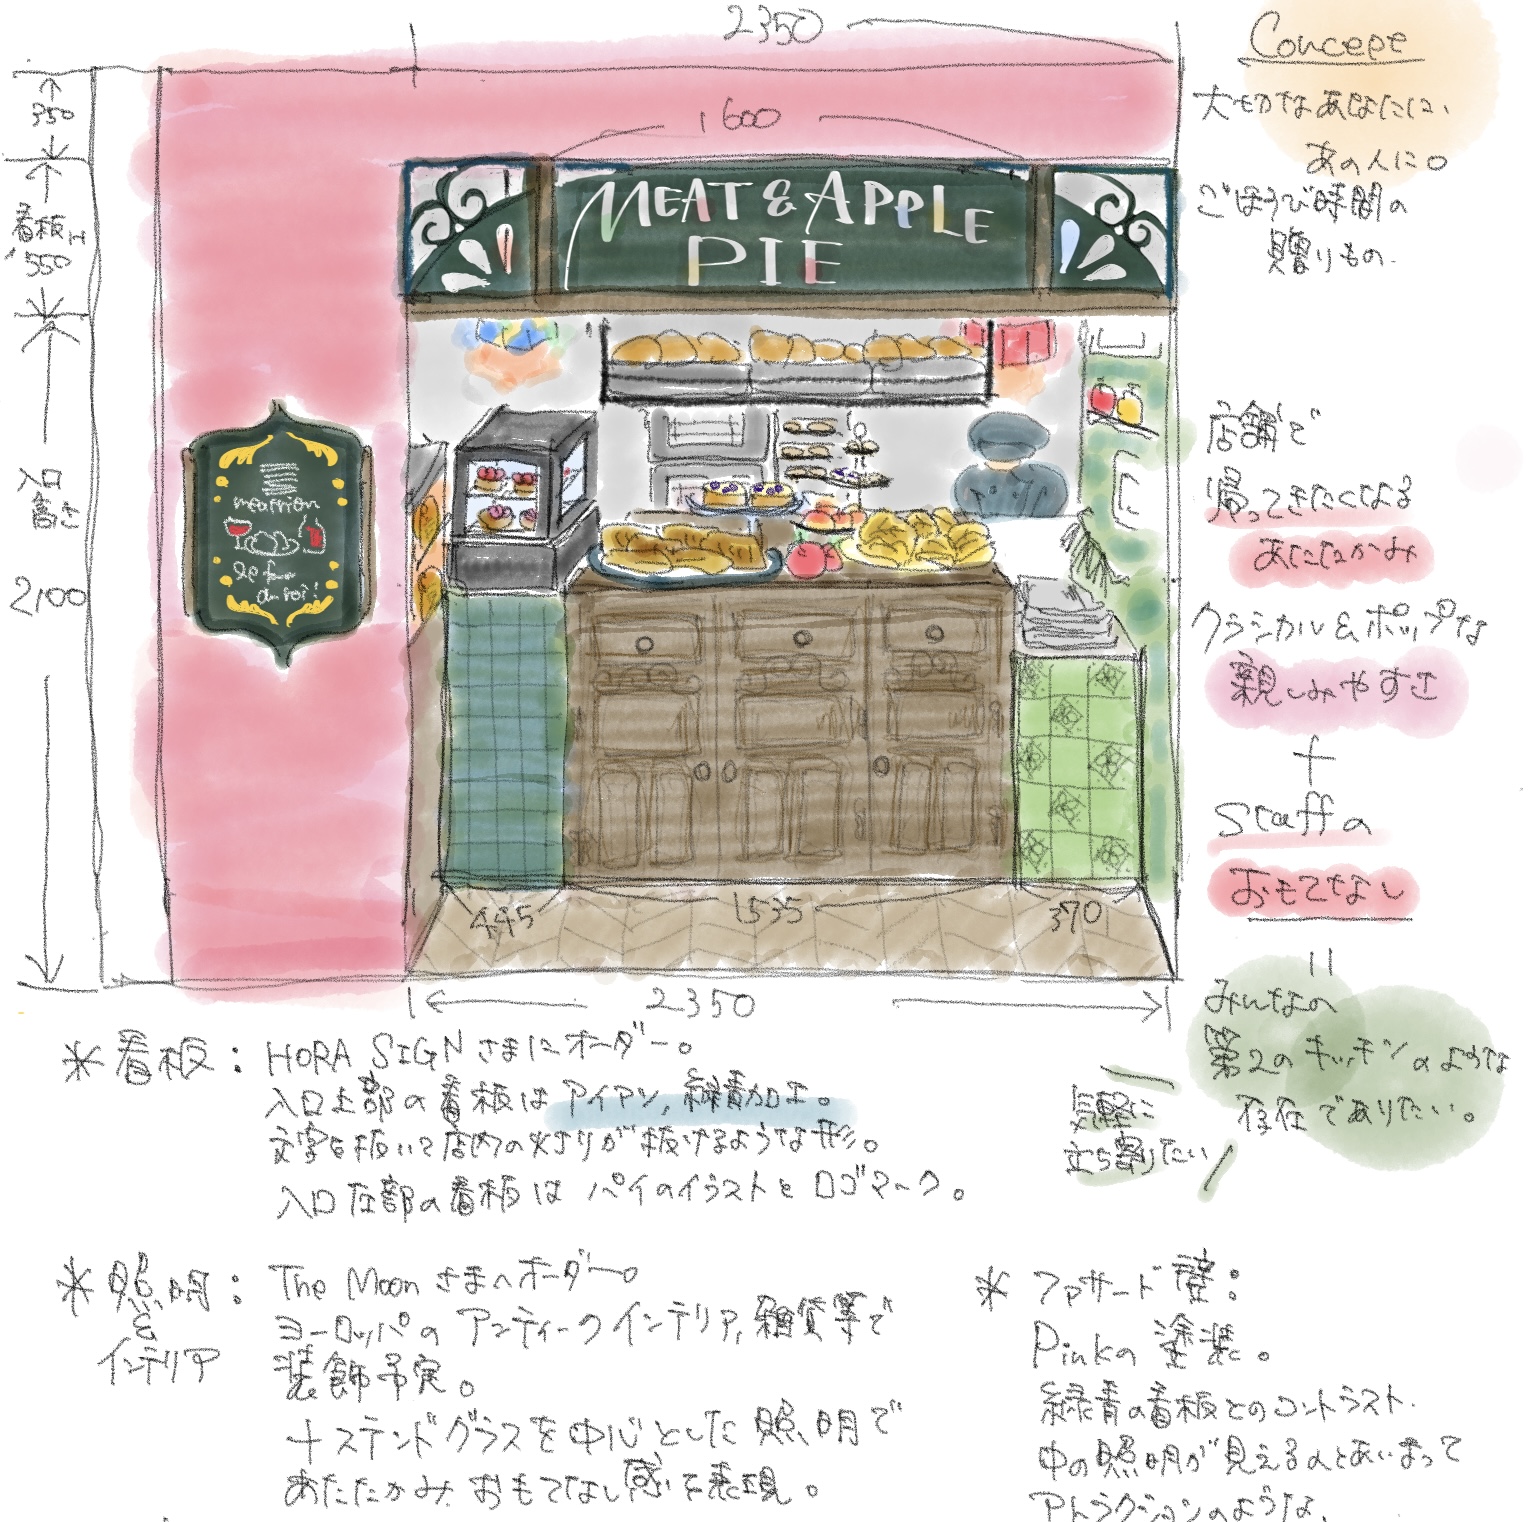 2350
350
1600
看板H
550
MEAT & APPLE
PIE
入口
高さ
2100
meatrion
445
1535
370
2350
Concept
大切なあなたに、
あの人に。
ごほうび時間の
贈りもの.
店舗で
帰ってきたくなる
あたたかみ
クラシカル&ポップな
親しみやすさ
+
Staffの
おもてなし
=
みんなの
第2のキッチンのような
存在でありたい。
気軽に
立ち寄りたい
*看板: HORA SIGNさまにオーダー。
入口上部の看板はアイアン,緑青加工。
文字を抜いて店内の灯りが抜けるような形。
入口左部の看板はパイのイラストとロゴマーク。
*照明: The Moonさまへオーダー。
&
インテリア
ヨーロッパのアンティークインテリア,雑貨等で
装飾予定。
+ステンドグラスを中心とした照明で
あたたかみ.おもてなし感を表現。
*ファサード壁:
Pinkの塗装。
緑青の看板とのコントラスト.
中の照明が見えるのとあいまって
アトラクションのような、